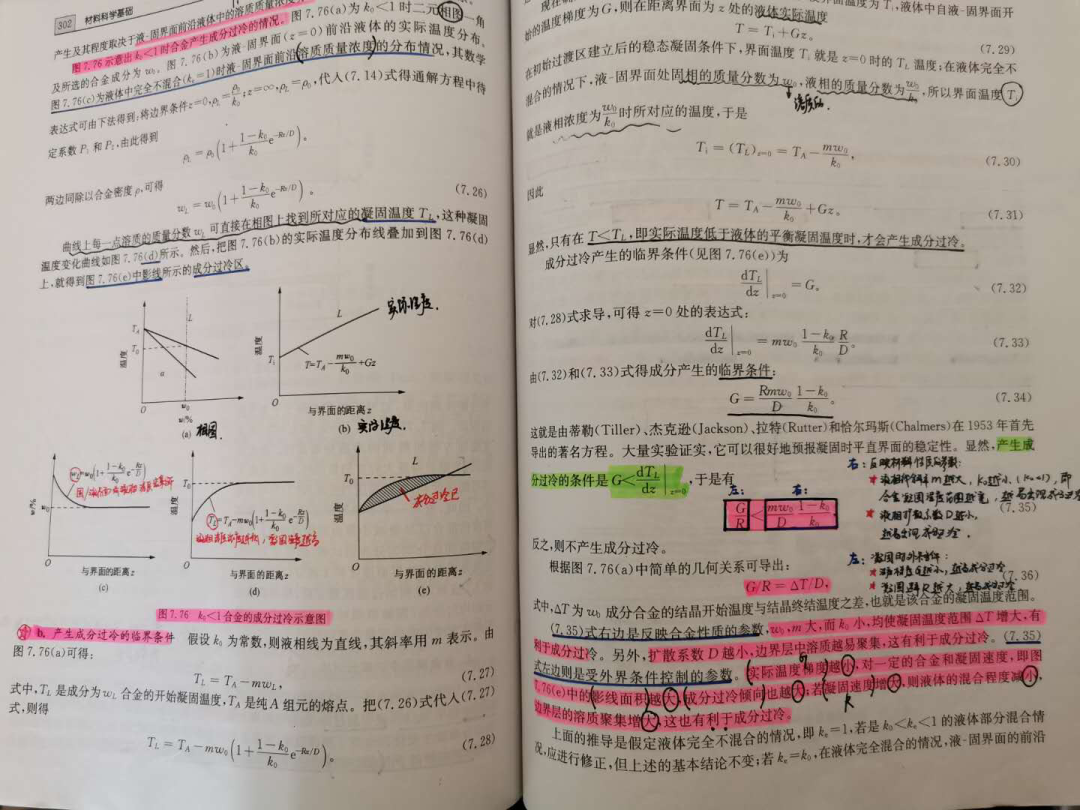 302 材料科学基础
产生及其程度取决于液-固界面前沿液体中的溶质质量浓度
图7.76示意出k₀<1时合金产生成分过冷的情况。图7.76(a)为k₀<1时二元相图一角
及所选的合金成分为w₀。图7.76(b)为液-固界面(z=0)前沿液体的实际温度分布。
图7.76(c)为液体中完全不混合(kₑ=1)时液-固界面前沿溶质质量浓度的分布情况,其数学
表达式可由下法得到:将边界条件z=0,ρL=ρ₀/k₀;z=∞,ρL=ρ₀,代入(7.14)式得通解方程中待
定系数P₁和P₂,由此得到
ρL=ρ₀(1+(1-k₀)/k₀ e^(-Rz/D))。
两边同除以合金密度ρ,可得
wL=w₀(1+(1-k₀)/k₀ e^(-Rz/D))。 (7.26)
曲线上每一点溶质的质量分数wL可直接在相图上找到所对应的凝固温度TL,这种凝固
温度变化曲线如图7.76(d)所示。然后,把图7.76(b)的实际温度分布线叠加到图7.76(d)
上,就得到图7.76(e)中影线所示的成分过冷区。
温度 TA T₀ L α 0 w₀ w/%
(a) 相图
实际温度
温度 Ti L T=TA-mw₀/k₀+Gz 0 与界面的距离z
(b) 实际温度
w/% w₀ wL=w₀(1+(1-k₀)/k₀ e^(-Rz/D)) 0 与界面的距离z
(c)
温度 T₀ TL=TA-mw₀(1+(1-k₀)/k₀ e^(-Rz/D)) 0 与界面的距离z
(d)
温度 T₀ L 成分过冷区 0 与界面的距离z
(e)
图7.76 k₀<1合金的成分过冷示意图
b. 产生成分过冷的临界条件 假设k₀为常数,则液相线为直线,其斜率用m表示。由
图7.76(a)可得:
TL=TA-mwL, (7.27)
式中,TL是成分为wL合金的开始凝固温度,TA是纯A组元的熔点。把(7.26)式代入(7.27)
式,则得
TL=TA-mw₀(1+(1-k₀)/k₀ e^(-Rz/D))。 (7.28)
界面温度为Ti,液体中自液-固界面开
始的温度梯度为G,则在距离界面为z处的液体实际温度
T=Ti+Gz。 (7.29)
在初始过渡区建立后的稳态凝固条件下,界面温度Ti就是z=0时的TL温度;在液体完全不
混合的情况下,液-固界面处固相的质量分数为w₀,液相的质量分数为w₀/k₀,所以界面温度Ti
溶质的
就是液相浓度为w₀/k₀时所对应的温度,于是
Ti=(TL)z=0=TA-mw₀/k₀, (7.30)
因此
T=TA-mw₀/k₀+Gz。 (7.31)
显然,只有在T<TL,即实际温度低于液体的平衡凝固温度时,才会产生成分过冷。
成分过冷产生的临界条件(见图7.76(e))为
dTL/dz|z=0=G。 (7.32)
对(7.28)式求导,可得z=0处的表达式:
dTL/dz|z=0=mw₀ (1-k₀)/k₀ R/D。 (7.33)
由(7.32)和(7.33)式得成分产生的临界条件:
G=Rmw₀/D (1-k₀)/k₀。 (7.34)
这就是由蒂勒(Tiller)、杰克逊(Jackson)、拉特(Rutter)和恰尔玛斯(Chalmers)在1953年首先
导出的著名方程。大量实验证实,它可以很好地预报凝固时平直界面的稳定性。显然,产生成
分过冷的条件是G<dTL/dz|z=0,于是有
左: 右:
G/R<mw₀/D (1-k₀)/k₀ (7.35)
右:反映材料性质的参数:
液相扩散系数D越小,
越易出现成分过冷.
反之,则不产生成分过冷。
左:凝固时外界条件:
根据图7.76(a)中简单的几何关系可导出:
G/R=ΔT/D, (7.36)
式中,ΔT为w₀成分合金的结晶开始温度与结晶终结温度之差,也就是该合金的凝固温度范围。
(7.35)式右边是反映合金性质的参数,w₀,m大,而k₀小,均使凝固温度范围ΔT增大,有
利于成分过冷。另外,扩散系数D越小,边界层中溶质越易聚集,这有利于成分过冷。(7.35)
式左边则是受外界条件控制的参数。实际温度梯度越小,对一定的合金和凝固速度,即图
7.76(e)中的影线面积越大,成分过冷倾向也越大;若凝固速度增大,则液体的混合程度减小,
边界层的溶质聚集增大,这也有利于成分过冷。
上面的推导是假定液体完全不混合的情况,即kₑ=1,若是k₀<kₑ<1的液体部分混合情
况,应进行修正,但上述的基本结论不变;若kₑ=k₀,在液体完全混合的情况,液-固界面的前沿